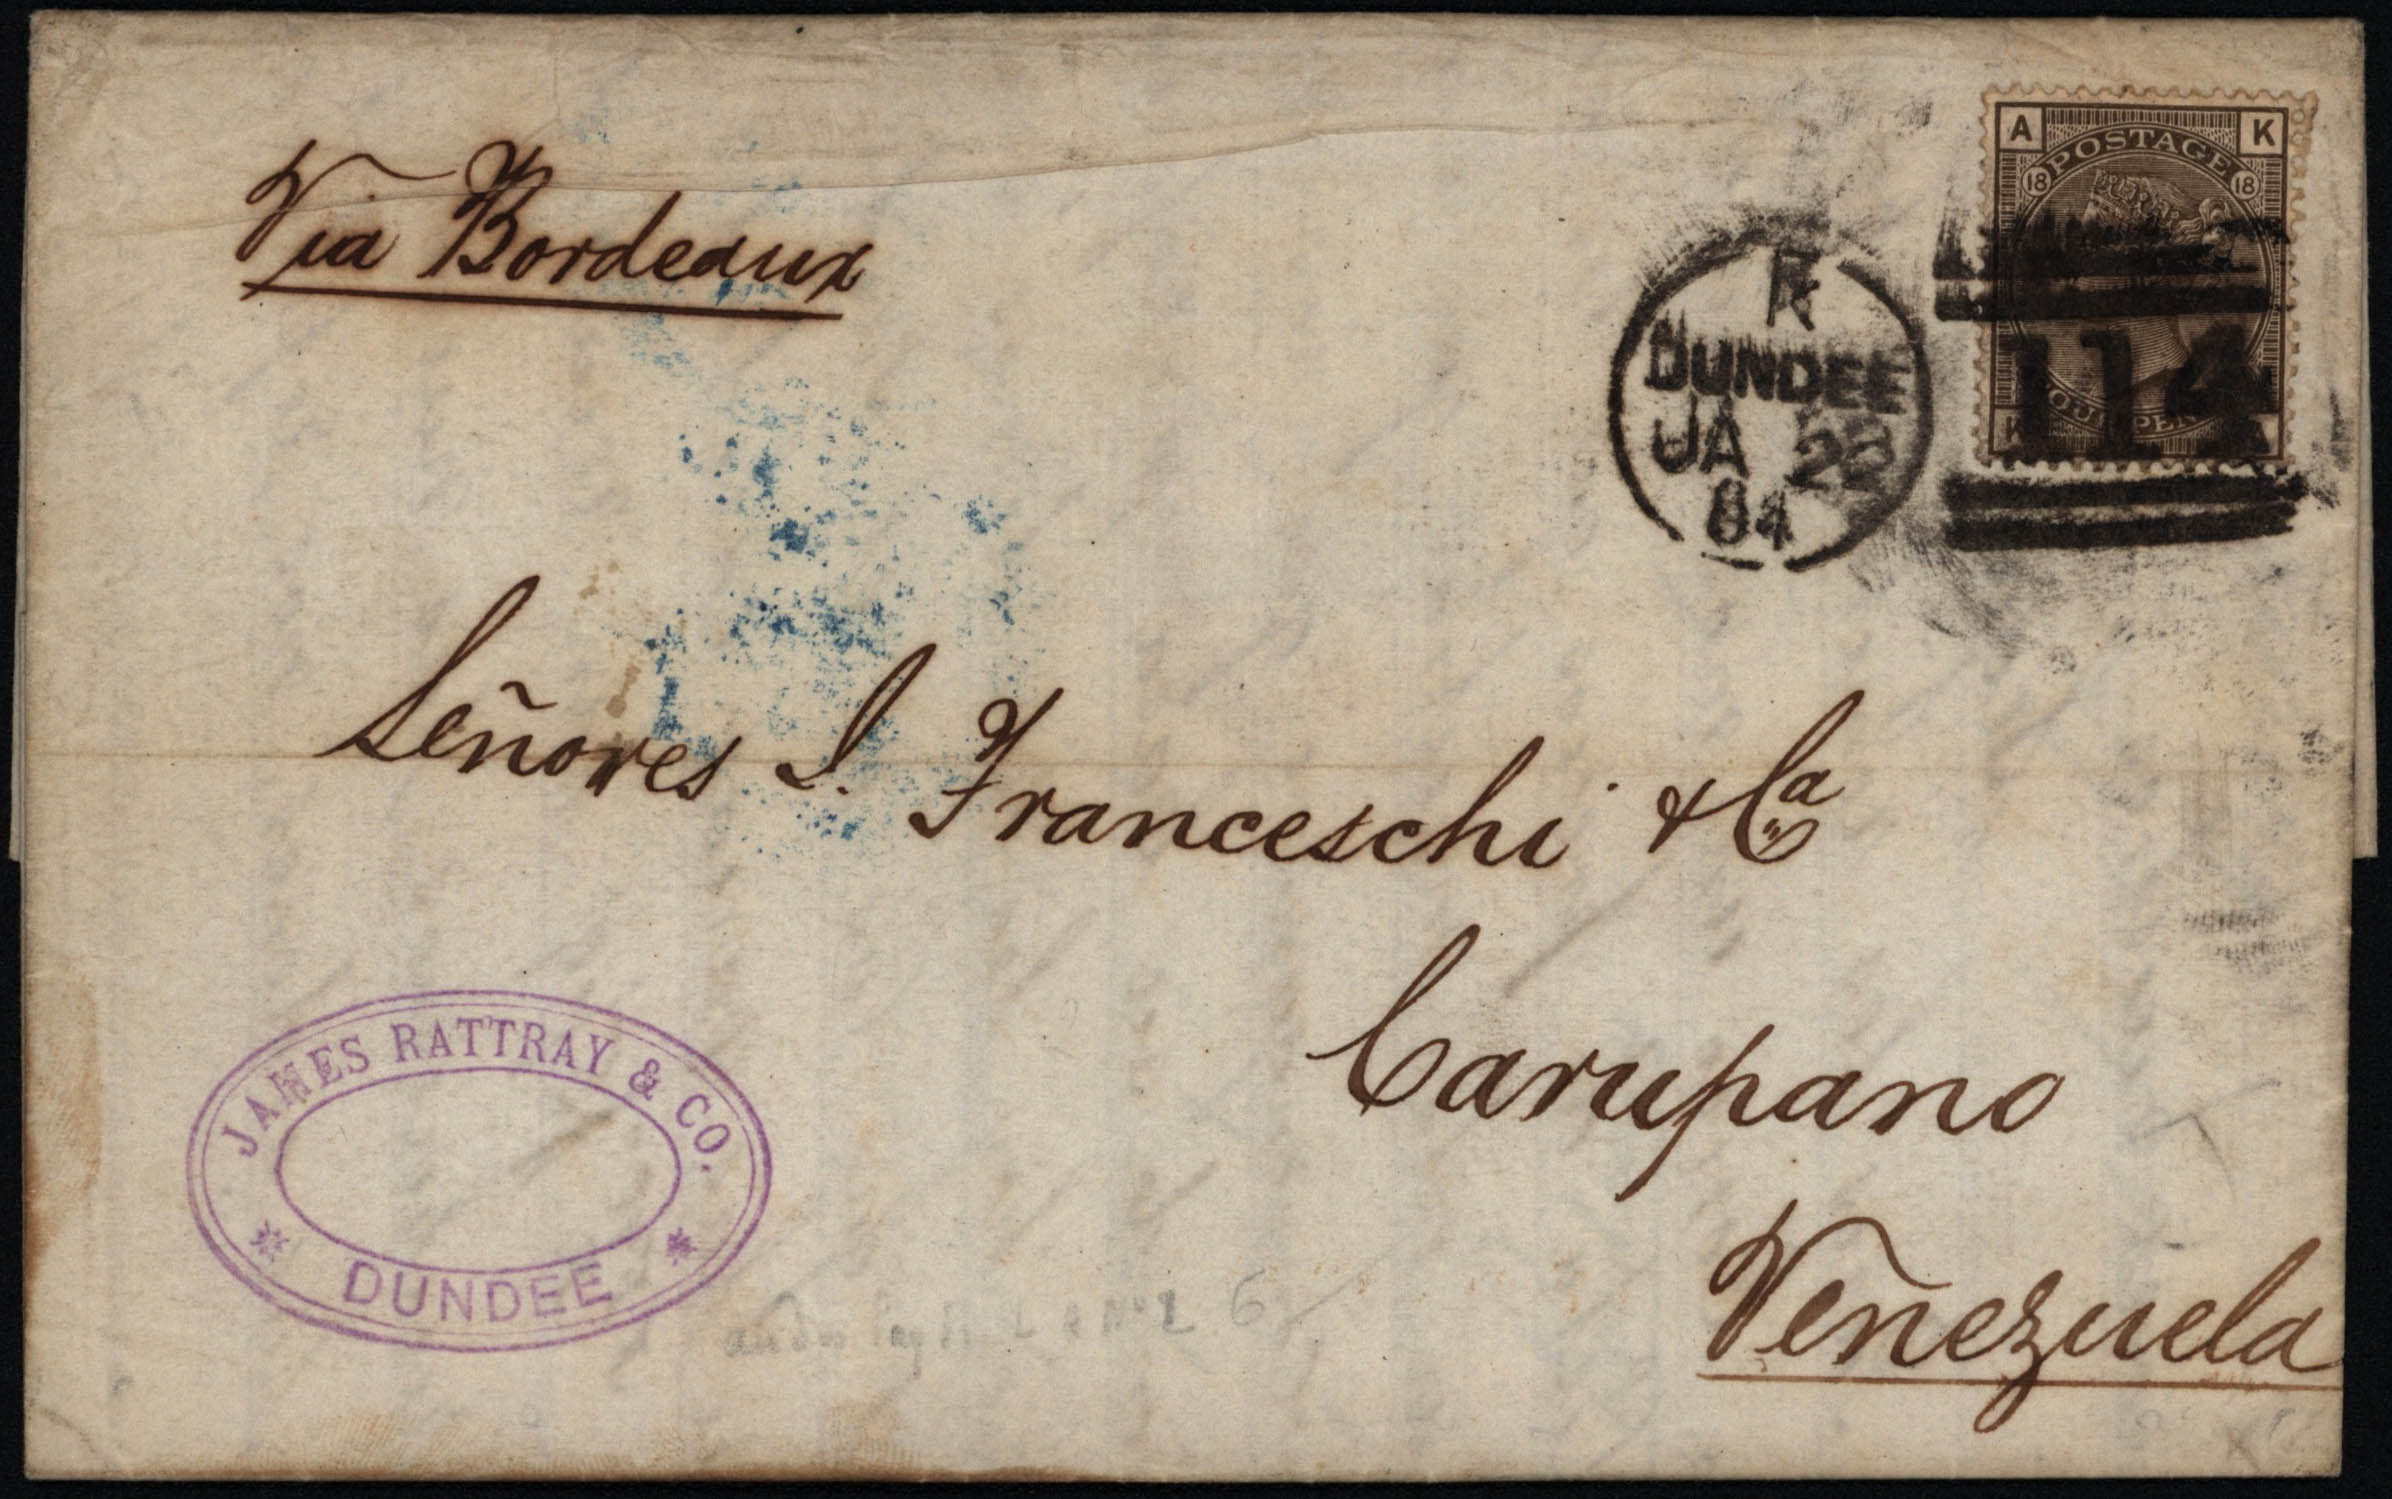 Via Bordeaux
A K
POSTAGE
18 18
R
DUNDEE
JA 22
84
114
Señores S. Franceschi & Ca
Carupano
Venezuela
JAMES RATTRAY & CO.
DUNDEE